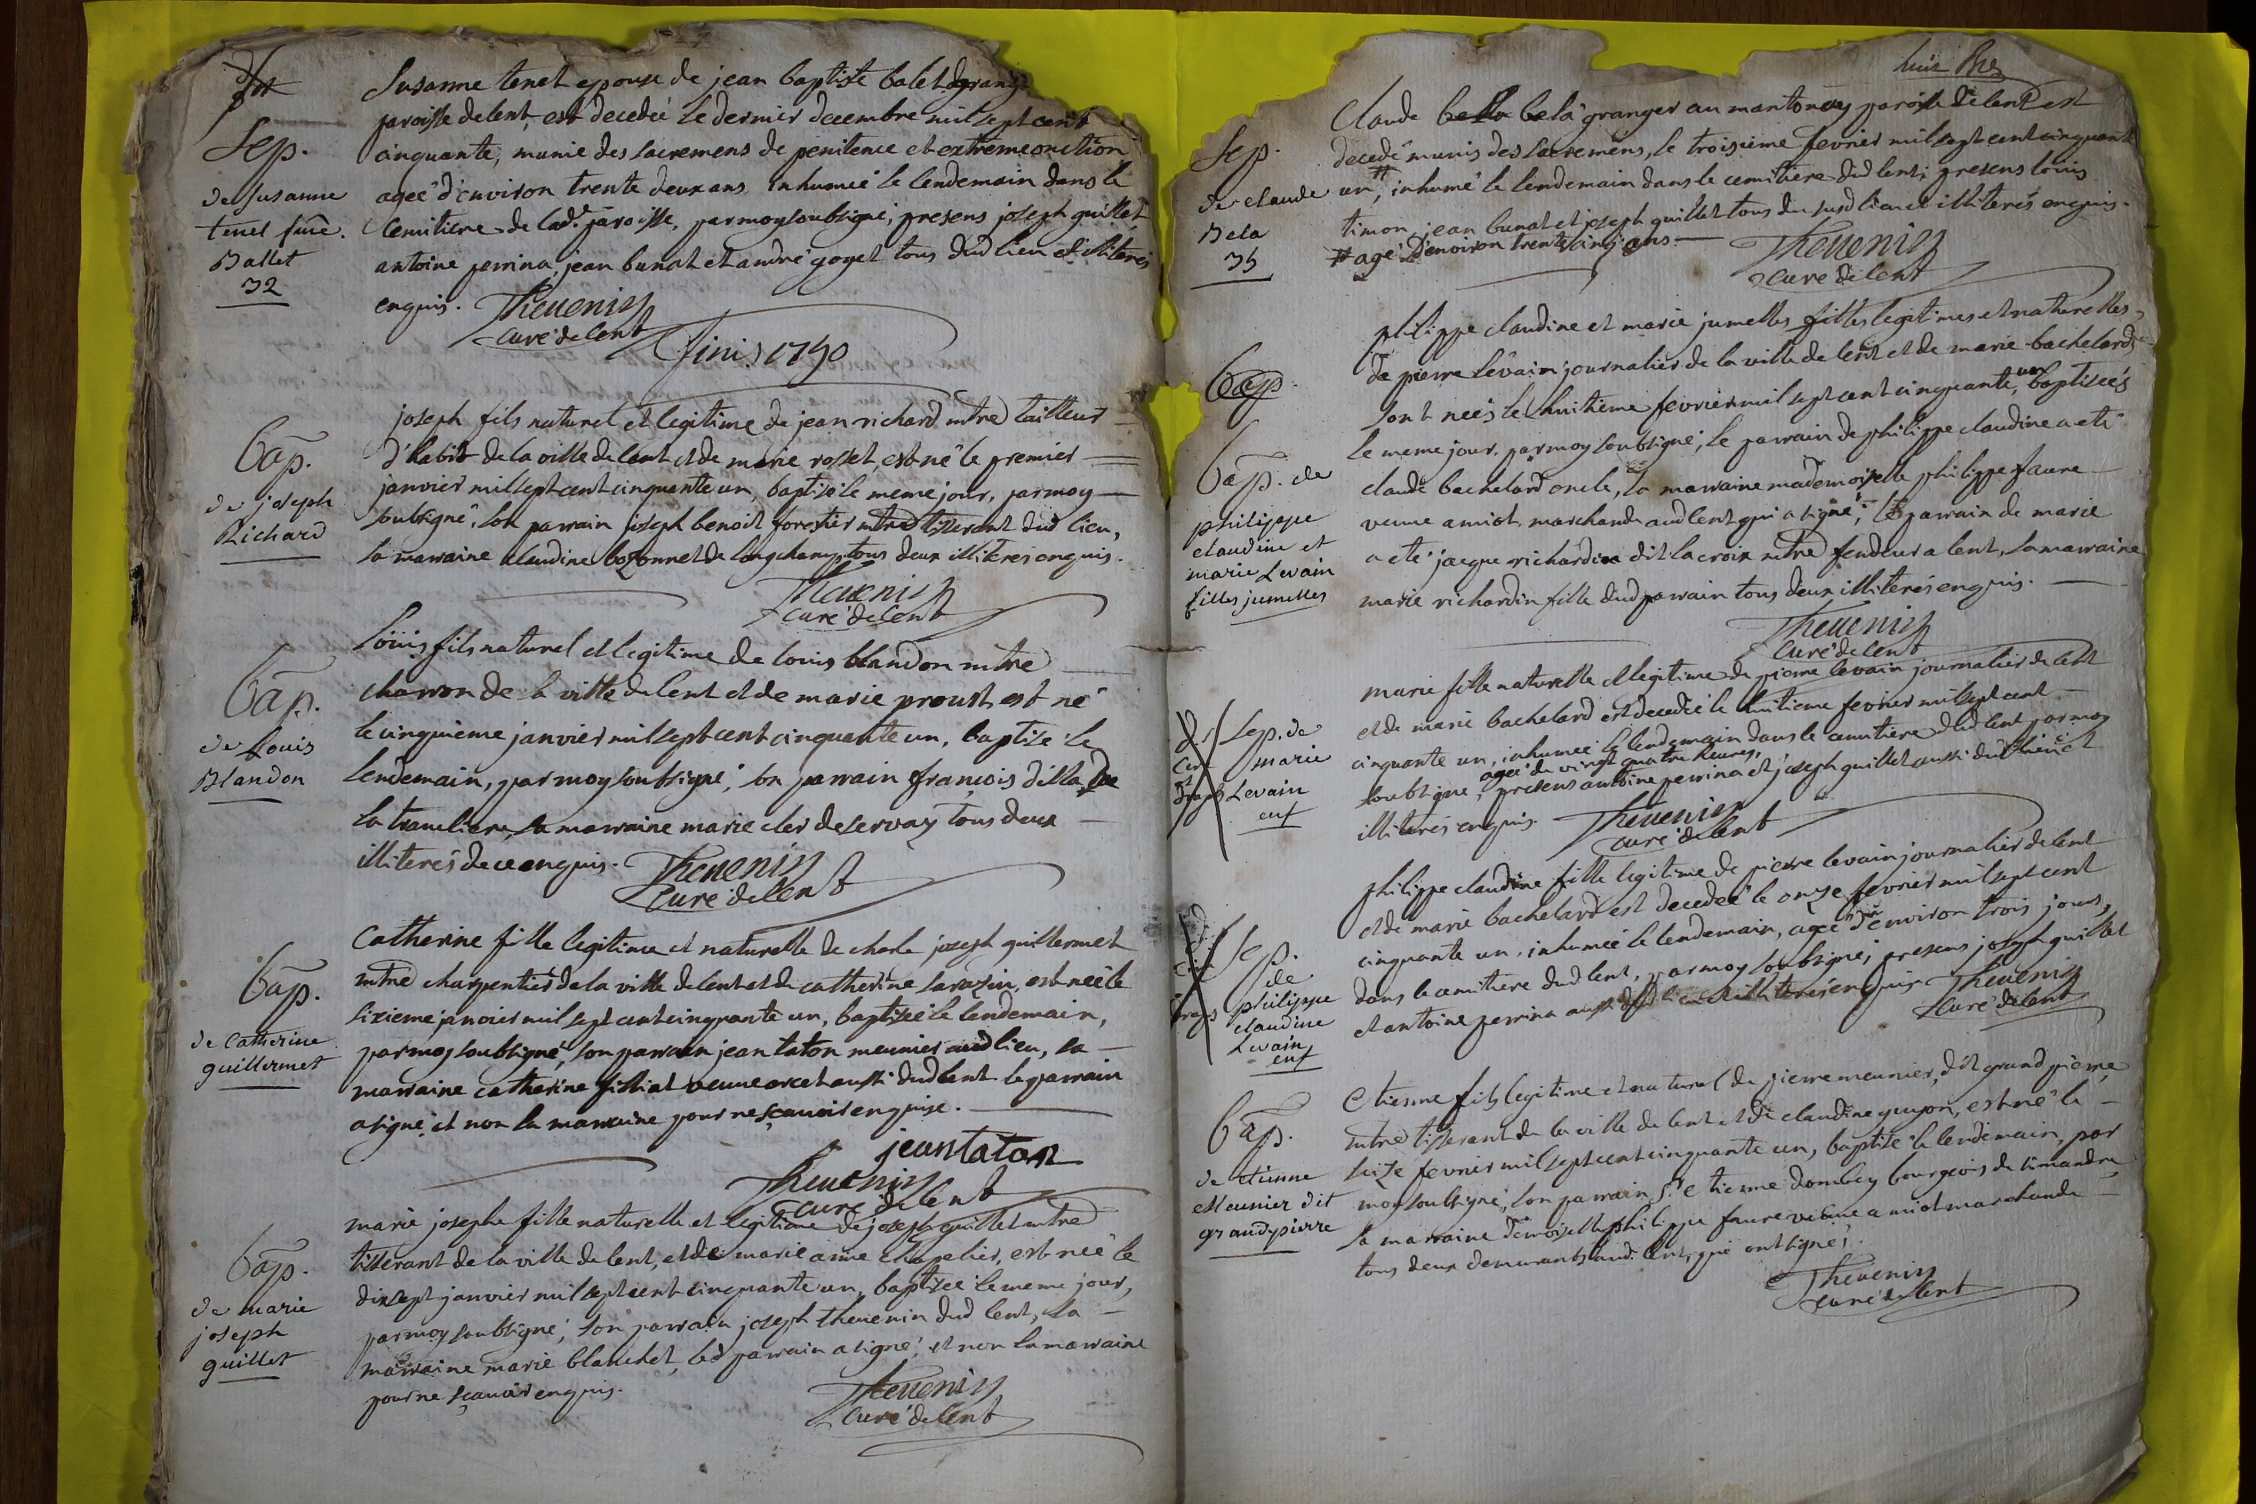 Sep.
de Susanne
tenet fme.
Ballet
32
Susanne tenet epouse de jean baptiste balet
paroisse de lent, est decedeé le dernier decembre mil sept cent
cinquante, munie des sacremens de penitence et extremeonction
ageé d'environ trente deux ans inhumeé le lendemain dans le
cemitiere de lade. paroisse, par moy soubsigné, presens joseph guillet,
antoine perrina, jean bunat et andré goyet tous dud lieu et illiterés
enquis. Theuenin
curé de lent
finis 1750
Bap.
de joseph
Richard
joseph fils naturel et legitime de jean richard mtre tailleur
d'habit de la ville de lent et de marie rosset, est né le premier
janvier mil sept cent cinquante un, baptisé le meme jour, par moy
soubsigné, son parrain joseph benoit forestier mtre tisserant dud lieu,
sa marraine claudine bozonnet de longchamp tous deux illiterés enquis.
Theuenin
curé de lent
Bap.
de Louis
Blandon
Loüis fils naturel et legitime de louis blandon mtre
charron de la ville de lent et de marie proust, est né
le cinquieme janvier mil sept cent cinquante un, baptisé le
lendemain, par moy soubsigné, son parrain françois dilla de
la trancliere, sa marraine marie cler de servay tous deux
illiterés de ce enquis. Theuenin
curé de lent
Bap.
de Catherine
guillermet
Catherine fille legitime et naturelle de charle joseph guillermet
mtre charpentier de la ville de lent et de catherine sarazin, est neé le
sixieme janvier mil sept cent cinquante un, baptiseé le lendemain,
par moy soubsigné, son parrain jean taton meunier aud lieu, sa
marraine catherine filliat veuve arcet aussi dud lent le parrain
a signé, et non la marraine pour ne sçauoir enquise.
jean taton
Theuenin
curé de lent
Bap.
de marie
joseph
guillet
marie josephe fille naturelle et legitime de joseph guillet mtre
tisserant de la ville de lent, et de marie anne chapelier, est neé le
dixsept janvier mil sept cent cinquante un, baptiseé le meme jour,
par moy soubsigné, son parrain joseph theuenin dud lent, sa
marraine marie blanchet, led parrain a signé, et non la marraine
pour ne sçauoir enquis.
Theuenin
curé de lent
Sep.
de claude
Bela
35
Claude bela granger au mantonay paroisse de lent est
decedé munis des sacremens, le troisieme fevrier mil sept cent cinquante
un, # inhumé le lendemain dans le cemitiere dud lent, presens louis
timon, jean bunat et joseph guillet tous du susd lieu et illiterés enquis.
# agé d'environ trente cinq ans. Theuenin
curé de lent
Bap.
Bap. de
philippe
claudine et
marie Levain
filles jumelles
philippe claudine et marie jumelles filles legitimes et naturelles
de pierre levain journalier de la ville de lent et de marie bachelard
sont neés le huitieme fevrier mil sept cent cinquante un, baptiseés
le meme jour, par moy soubsigné, le parrain de philippe claudine a eté
claude bachelard oncle, la marraine mademoiselle philippe faure
veuve amiot marchande aud lent qui a signé, le parrain de marie
a eté jacque richardin dit lacroix mtre fendeur a lent, sa marraine
marie richardin fille dud parrain tous deux illiterés enquis.
Theuenin
curé de lent
Sep. de
marie
Levain
enf
marie fille naturelle et legitime de pierre levain journalier de lent
et de marie bachelard est decedeé le huitieme fevrier mil sept cent
cinquante un, inhumeé le lendemain dans le cemitiere dud lent par moy
ageé de vingt quatre heures,
soubsigné, presens antoine perrina et joseph guillet aussi dud lieu et
illiterés enquis. Theuenin
curé de lent
Sep.
de
philippe
claudine
Levain
enf
philippe claudine fille legitime de pierre levain journalier de lent
et de marie bachelard est decedeé le onze fevrier mil sept cent
cinquante un, inhumeé le lendemain, ageé d'environ trois jours,
dans le cemitiere dud lent, par moy soubsigné, presens joseph guillet
et antoine perrina aussi dud lieu illiterés enquis Theuenin
curé de lent
Bap.
de etienne
Meunier dit
grandpierre
Etienne fils legitime et naturel de pierre meunier, dit grand pierre,
mtre tisserant de la ville de lent et de claudine guyon, est né le
seize fevrier mil sept cent cinquante un, baptisé le lendemain, par
moy soubsigné, son parrain sr. etienne dombey bourgeois de simandre
sa marraine demoiselle philippe faure veuve amiot marchande
tous deux demeurants aud. lent, qui ont signés.
Theuenin
curé de lent